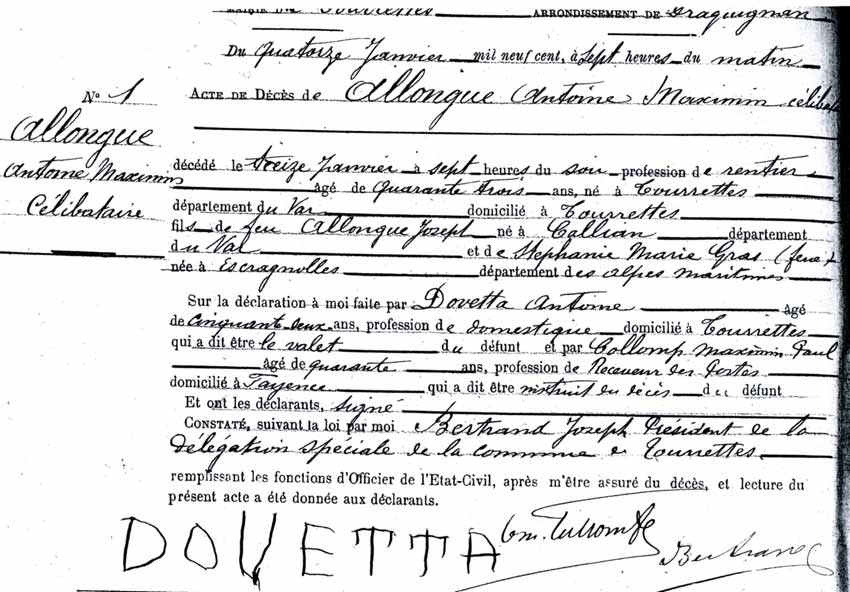 Tourrettes ARRONDISSEMENT DE Draguignan
Du quatorze Janvier mil neuf cent, à sept heures du matin
N° 1
ACTE DE DÉCÈS de Allongue Antoine Maximin célibataire
Allongue
Antoine Maximin
Célibataire
décédé le treize Janvier à sept heures du soir profession de rentier
âgé de quarante trois ans, né à Tourrettes
département du Var domicilié à Tourrettes
fils de feu Allongue Joseph né à Callian département
du Var et de Stephanie Marie Gras (feue)
née à Escragnolles département des alpes maritimes
Sur la déclaration à moi faite par Dovetta Antoine âgé
de cinquant deux ans, profession de domestique domicilié à Tourrettes
qui a dit être le valet du défunt et par Collomp Maximin Paul
âgé de quarante ans, profession de Receveur des Postes
domicilié à Fayence qui a dit être instruit du décès du défunt
Et ont les déclarants, signé
CONSTATÉ, suivant la loi par moi Bertrand Joseph Président de la
délégation spéciale de la commune de Tourrettes
remplissant les fonctions d'Officier de l'Etat-Civil, après m'être assuré du décès, et lecture du
présent acte a été donnée aux déclarants.
DOVETTA
Bertrand